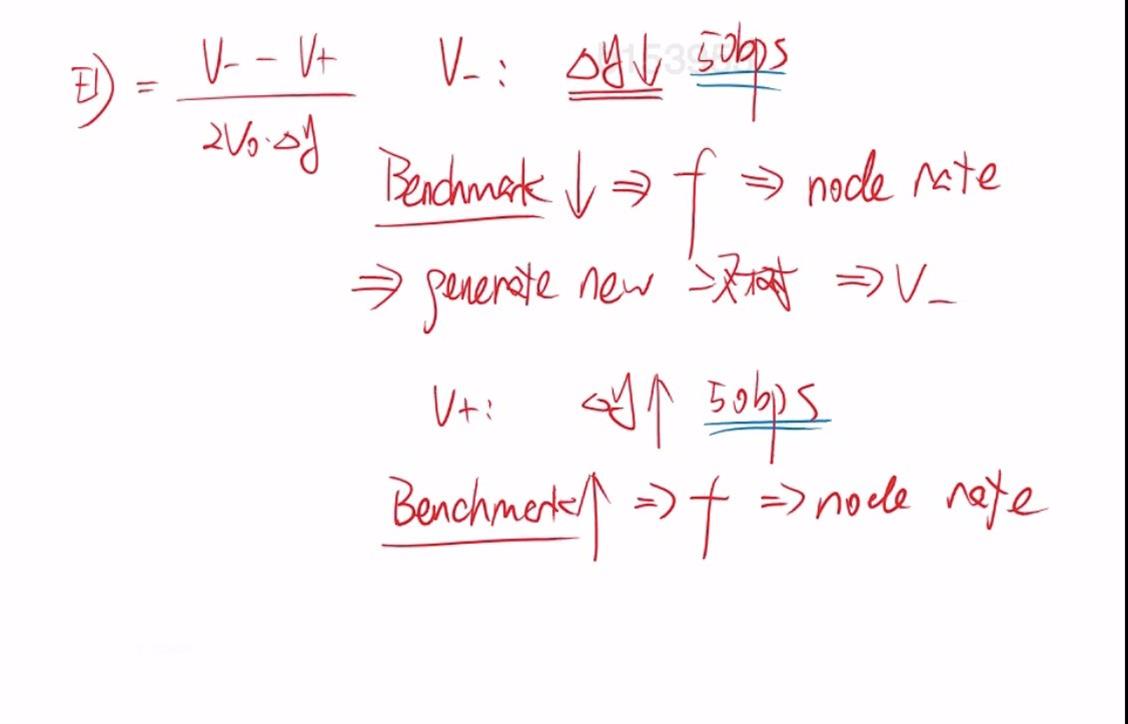 ED = (V₋ - V₊) / (2V₀·Δy)
V₋: Δy↓ 50bps
Benchmark ↓ ⇒ f ⇒ node rate
⇒ generate new 二叉树 ⇒ V₋
V+: Δy↑ 50bps
Benchmark↑ ⇒ f ⇒ node rate